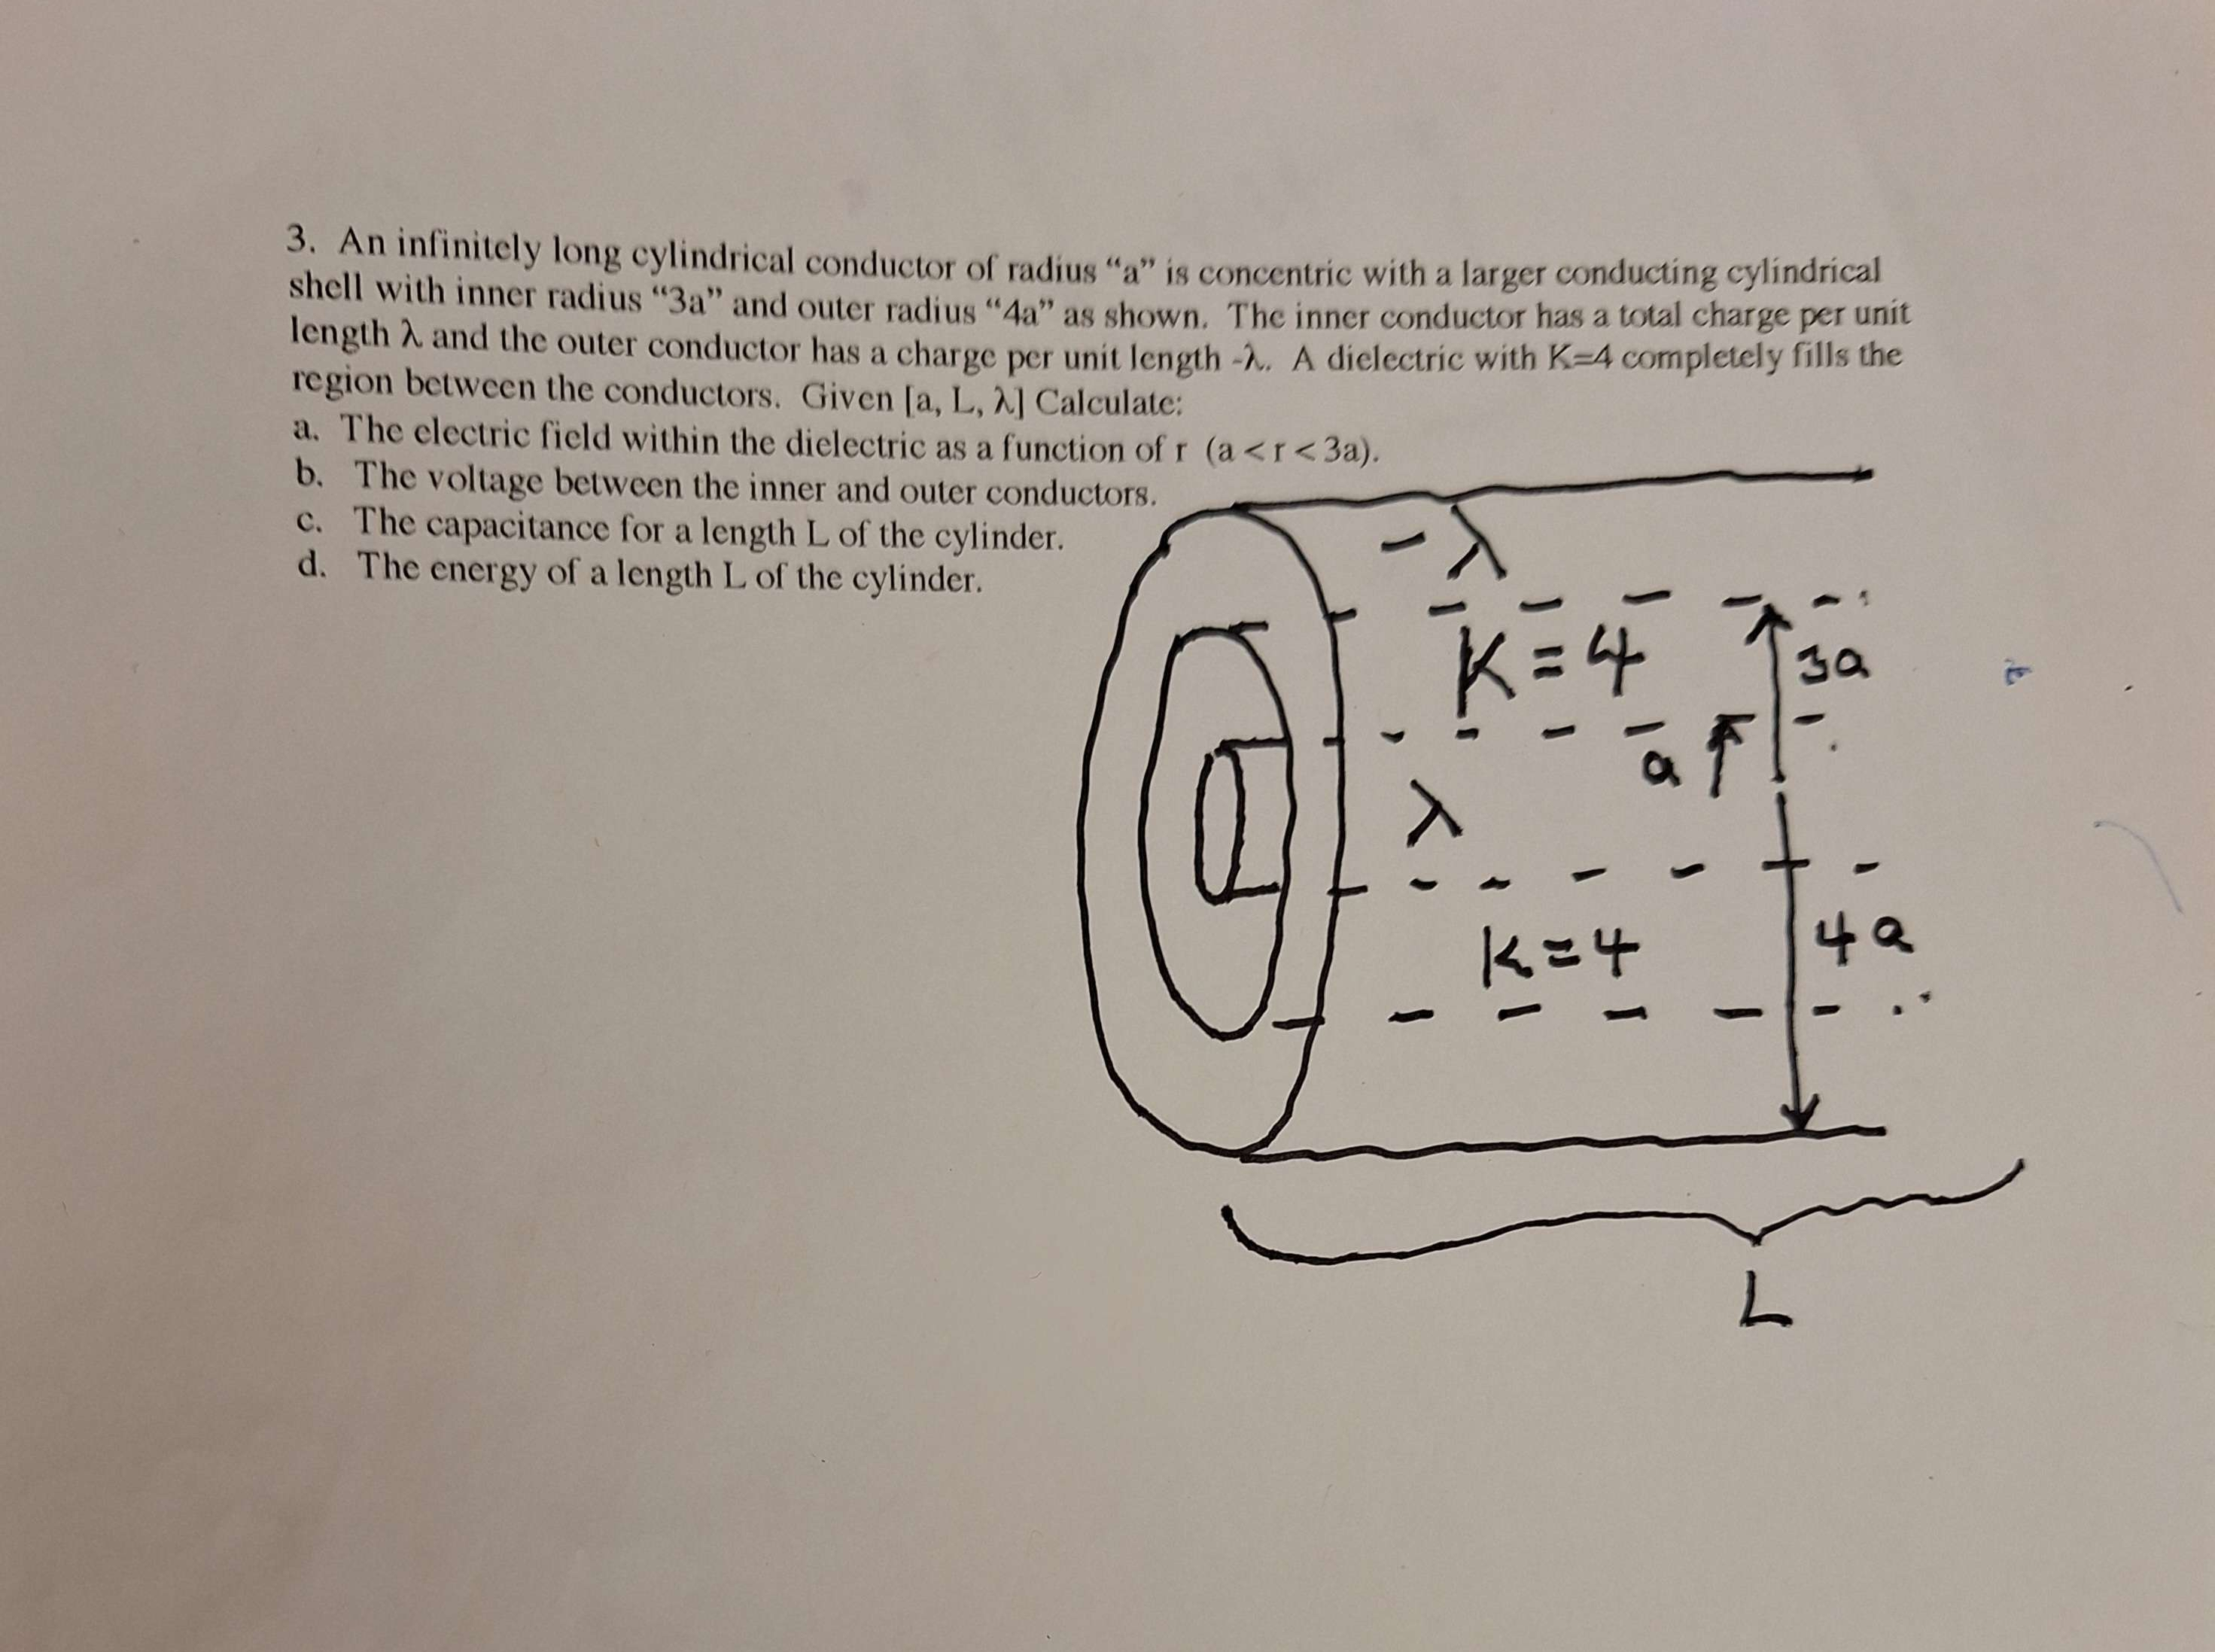 3. An infinitely long cylindrical conductor of radius “a” is concentric with a larger conducting cylindrical
shell with inner radius “3a” and outer radius “4a” as shown. The inner conductor has a total charge per unit
length λ and the outer conductor has a charge per unit length -λ. A dielectric with K=4 completely fills the
region between the conductors. Given [a, L, λ] Calculate:
a. The electric field within the dielectric as a function of r (a<r<3a).
b. The voltage between the inner and outer conductors.
c. The capacitance for a length L of the cylinder.
d. The energy of a length L of the cylinder.
-λ
K=4
3a
a
λ
K=4
4a
L